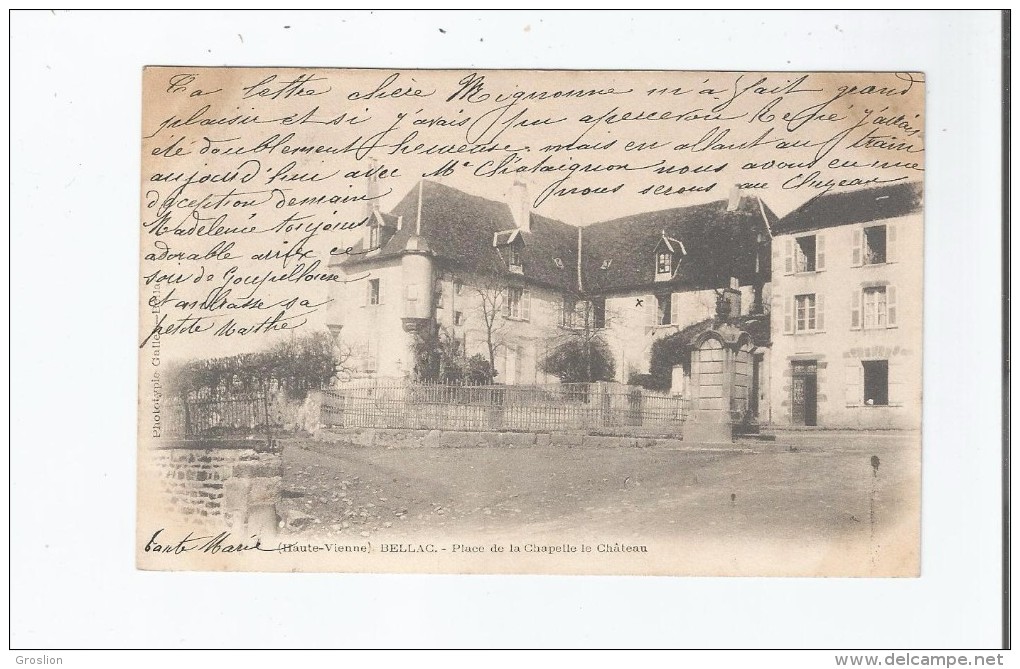 Ta lettre chère Mignonne m'a fait grand
plaisir et si j'avais pu apercevoir René j'aurais
été doublement heureuse. mais en allant au train
aujourd'hui avec Me Châtaignon nous avons eu une
déception demain nous serons au
Madeleine toujours
adorable arrive ce
soir de Goupillone
et embrasse sa
petite Marthe
Tante Marie
Phototypie Galle
(Haute-Vienne) BELLAC. - Place de la Chapelle le Château
Groslion
www.delcampe.net